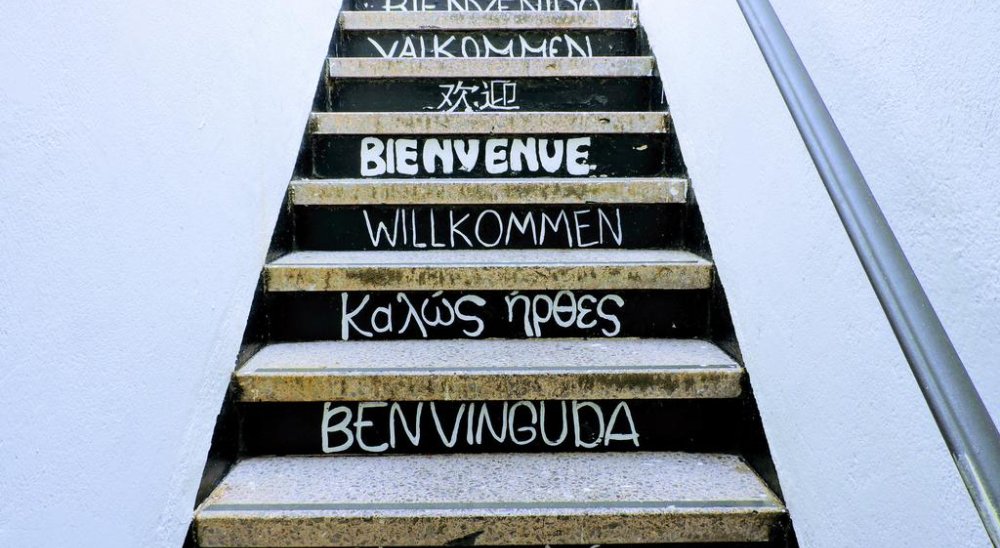 BIENVENIDO
VALKOMMEN
欢迎
BIENVENUE.
WILLKOMMEN
Καλώς ήρθες
BENVINGUDA